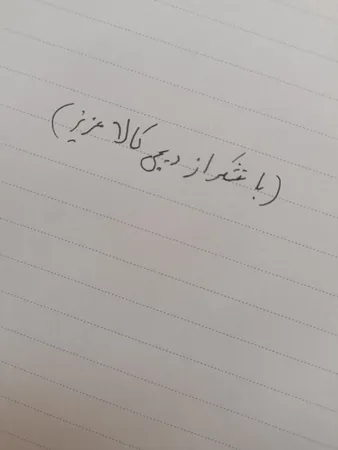 (با تشکر از دیجی کالا عزیز)